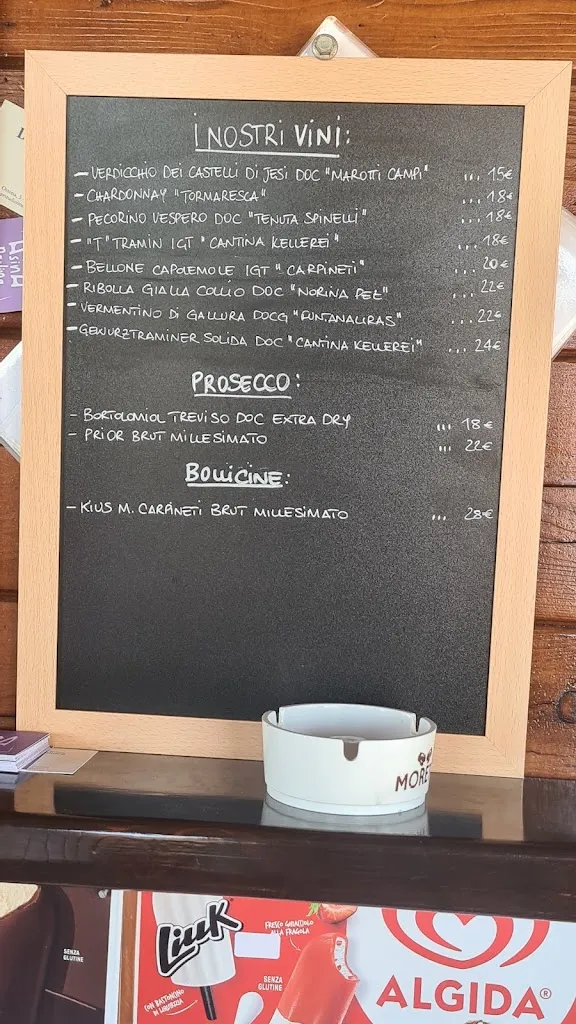 I NOSTRI VINI:
- VERDICCHIO DEI CASTELLI DI JESI DOC "MAROTTI CAMPI" ... 15€
- CHARDONNAY "TORMARESCA" ... 18€
- PECORINO VESPERO DOC "TENUTA SPINELLI" ... 18€
- "T" TRAMIN IGT "CANTINA KELLEREI" ... 18€
- BELLONE CAPOLEMOLE IGT "CARPINETI" ... 20€
- RIBOLLA GIALLA COLLIO DOC "NORINA PEZ" ... 22€
- VERMENTINO DI GALLURA DOCG "FUNTANALIRAS" ... 22€
- GEWURZTRAMINER SOLIDA DOC "CANTINA KELLEREI" ... 24€
PROSECCO:
- BORTOLOMIOL TREVISO DOC EXTRA DRY ... 18€
- PRIOR BRUT MILLESIMATO ... 22€
BOLLICINE:
- KIUS M. CARPINETI BRUT MILLESIMATO ... 28€
MORE
SENZA
GLUTINE
LiuK
FRESCO GHIACCIOLO
ALLA FRAGOLA
SENZA
GLUTINE
CON BASTONCINO
DI LIQUIRIZIA
ALGIDA®